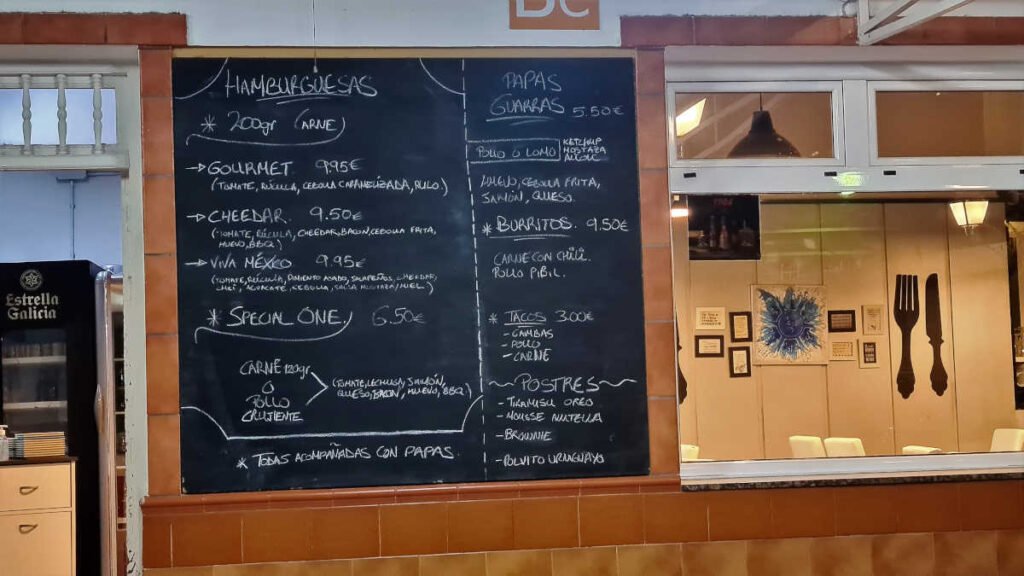 BC
HAMBURGÜESAS
* 200gr CARNE
→ GOURMET 9.95€
(TOMATE, RÚCULA, CEBOLLA CARAMELIZADA, RULO)
→ CHEEDAR. 9.50€
(TOMATE, RÚCULA, CHEEDAR, BACON, CEBOLLA FRITA,
HUEVO, BBQ)
→ VIVA MÉXICO 9.95€
(TOMATE, RÚCULA, PIMIENTO ASADO, JALAPEÑOS, CHEEDAR,
AGUACATE, CEBOLLA, SALSA MOSTAZA/MIEL)
* SPECIAL ONE 6.50€
CARNE 120gr
O
POLLO
CRUJIENTE
(TOMATE, LECHUGA, JAMÓN,
QUESO, BACON, HUEVO, BBQ)
* TODAS ACOMPAÑADAS CON PAPAS.
PAPAS
GUARRAS 5.50€
POLLO O LOMO
KETCHUP
MOSTAZA
ALIOLI
HUEVO, CEBOLLA FRITA,
JAMÓN, QUESO.
* BURRITOS. 9.50€
CARNE CON CHILI.
POLLO PIBIL.
* TACOS 3.00€
- GAMBAS
- POLLO
- CARNE
POSTRES
- TIRAMISU OREO
- MOUSSE NUTELLA
- BROWNIE
- POLVITO URUGUAYO
Estrella
Galicia